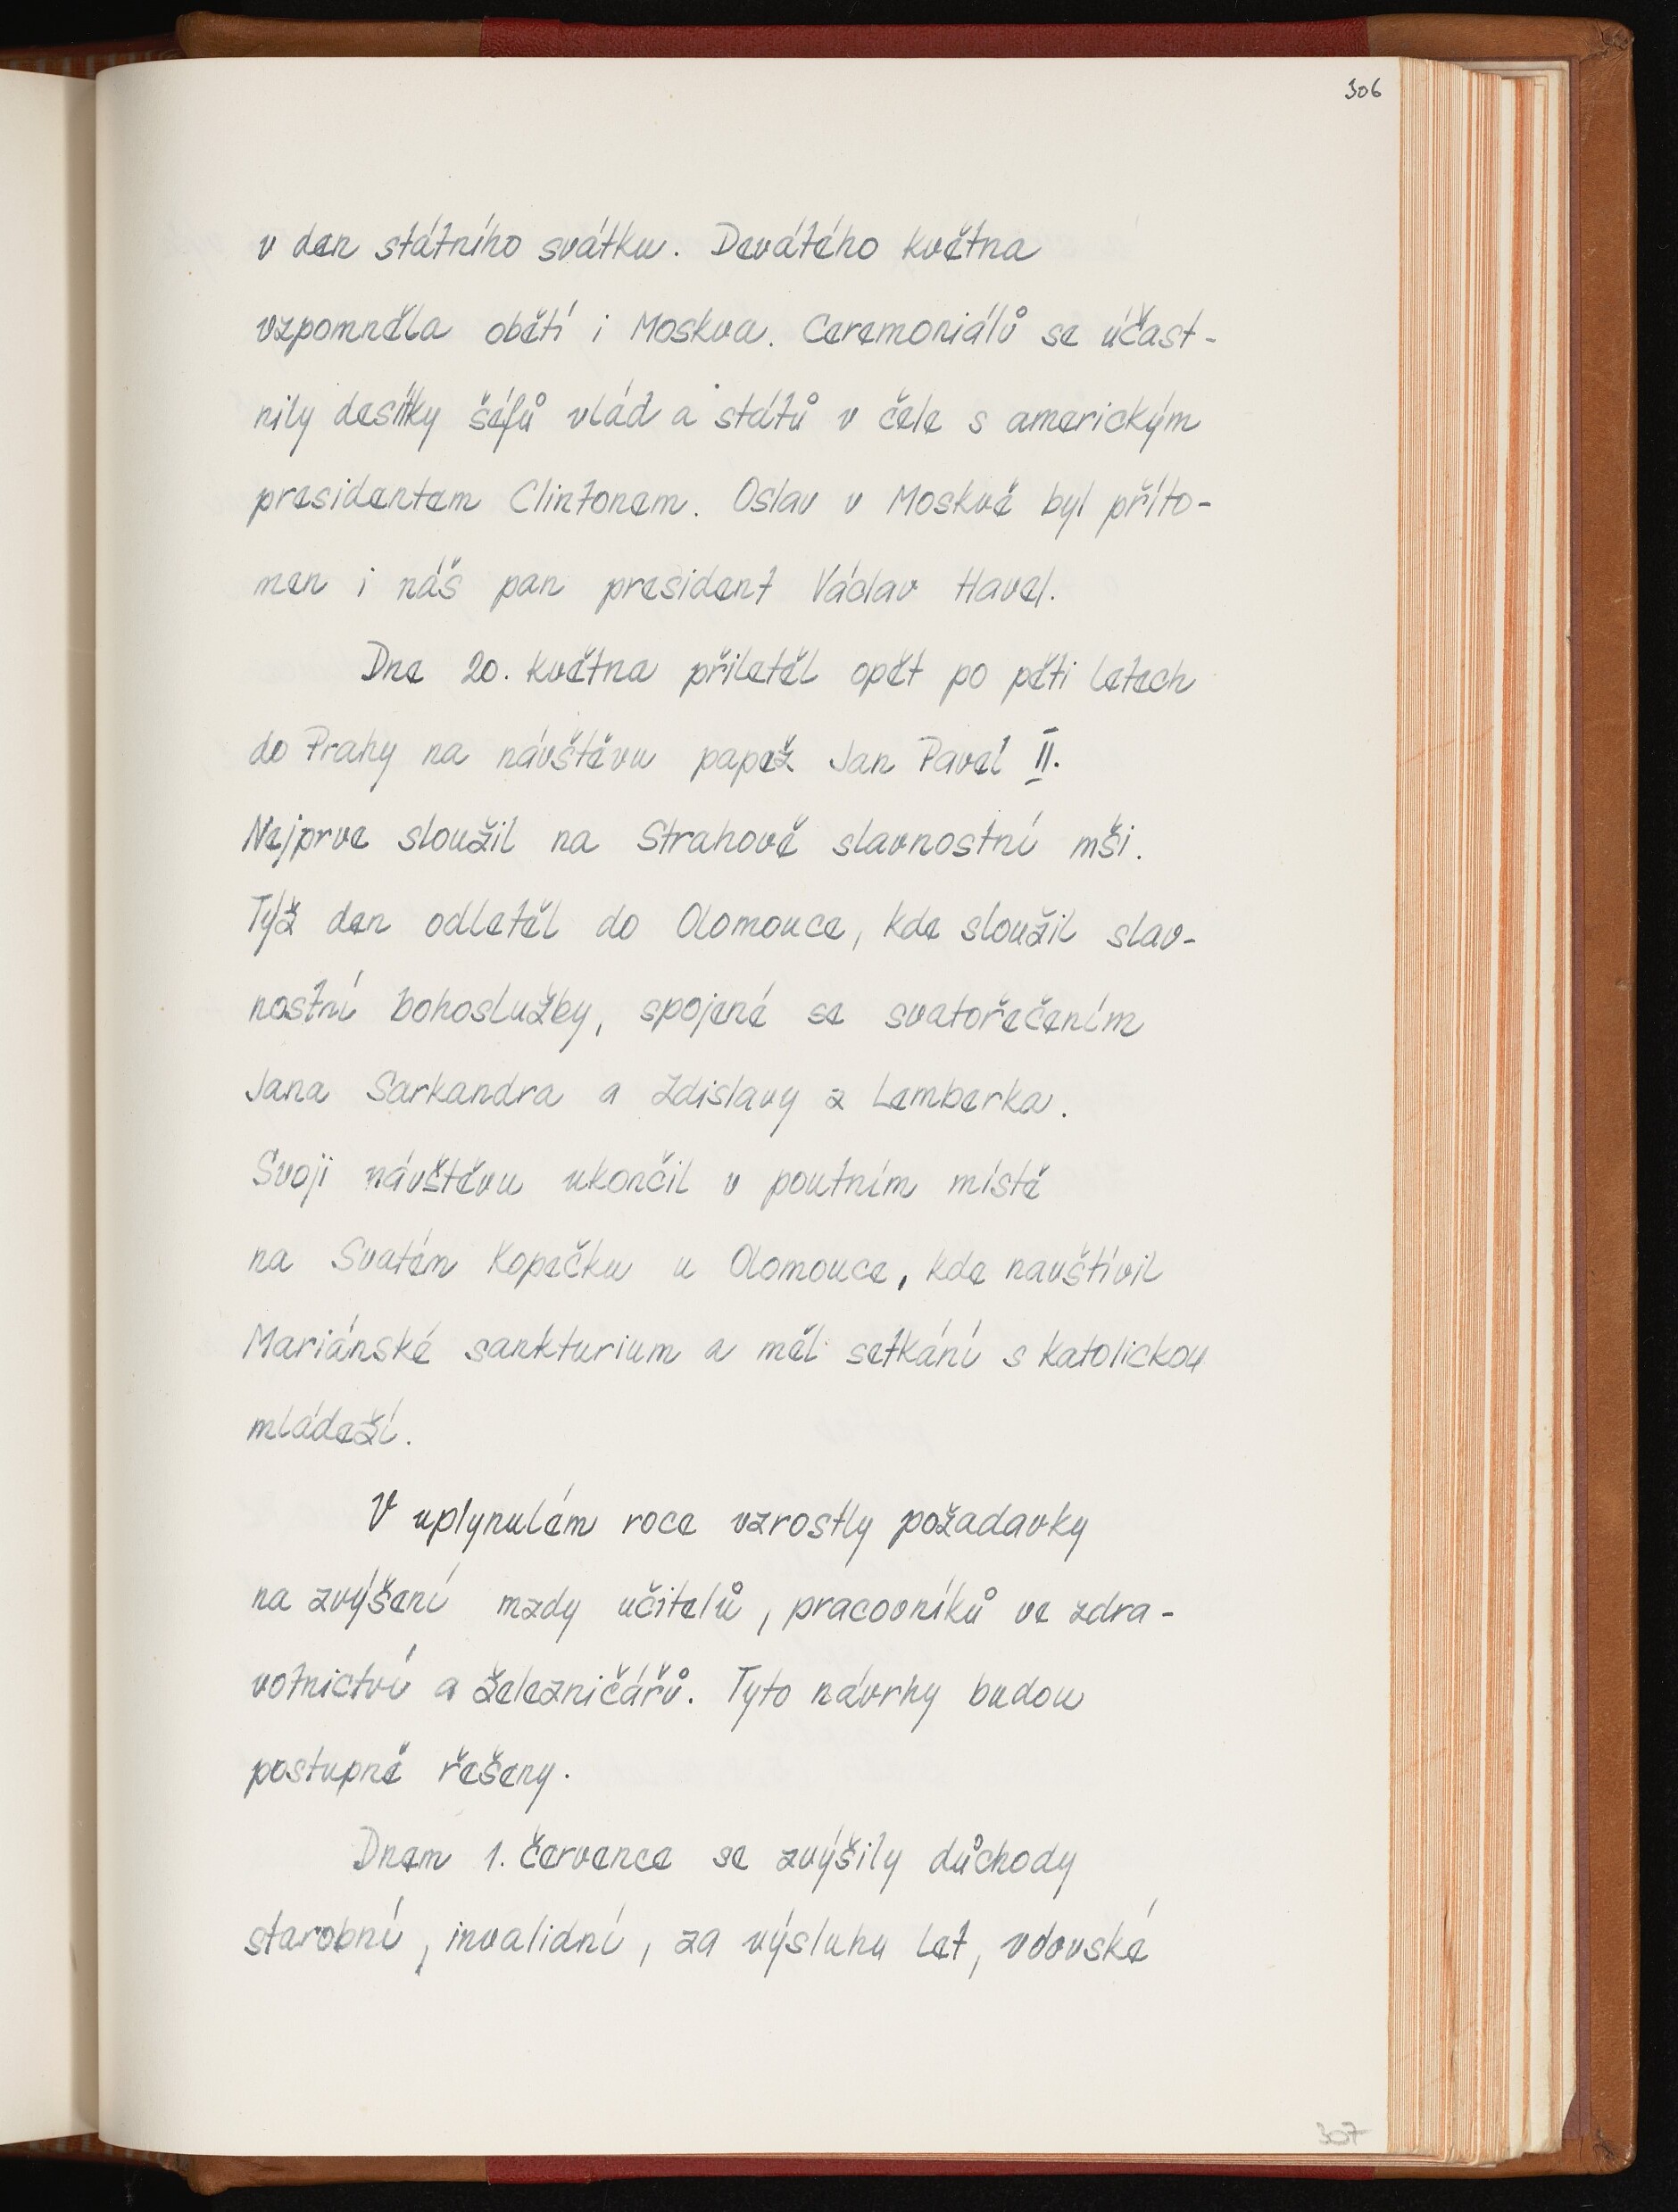 306
v den státního svátku. Devátého května
vzpomněla obětí i Moskva. Ceremoniálů se účast-
nily desítky šéfů vlád a států v čele s americkým
presidentem Clintonem. Oslav v Moskvě byl příto-
men i náš pan president Václav Havel.
Dne 20. května přiletěl opět po pěti letech
do Prahy na návštěvu papež Jan Pavel II.
Nejprve sloužil na Strahově slavnostní mši.
Týž den odletěl do Olomouce, kde sloužil slav-
nostní bohoslužby, spojené se svatořečením
Jana Sarkandra a Zdislavy z Lemberka.
Svoji návštěvu ukončil v poutním místě
na Svatém Kopečku u Olomouce, kde navštívil
Mariánské sankturium a měl setkání s katolickou
mládeží.
V uplynulém roce vzrostly požadavky
na zvýšení mzdy učitelů, pracovníků ve zdra-
votnictví a železničářů. Tyto návrhy budou
postupně řešeny.
Dnem 1. července se zvýšily důchody
starobní, invalidní, za výsluhu let, vdovské
307